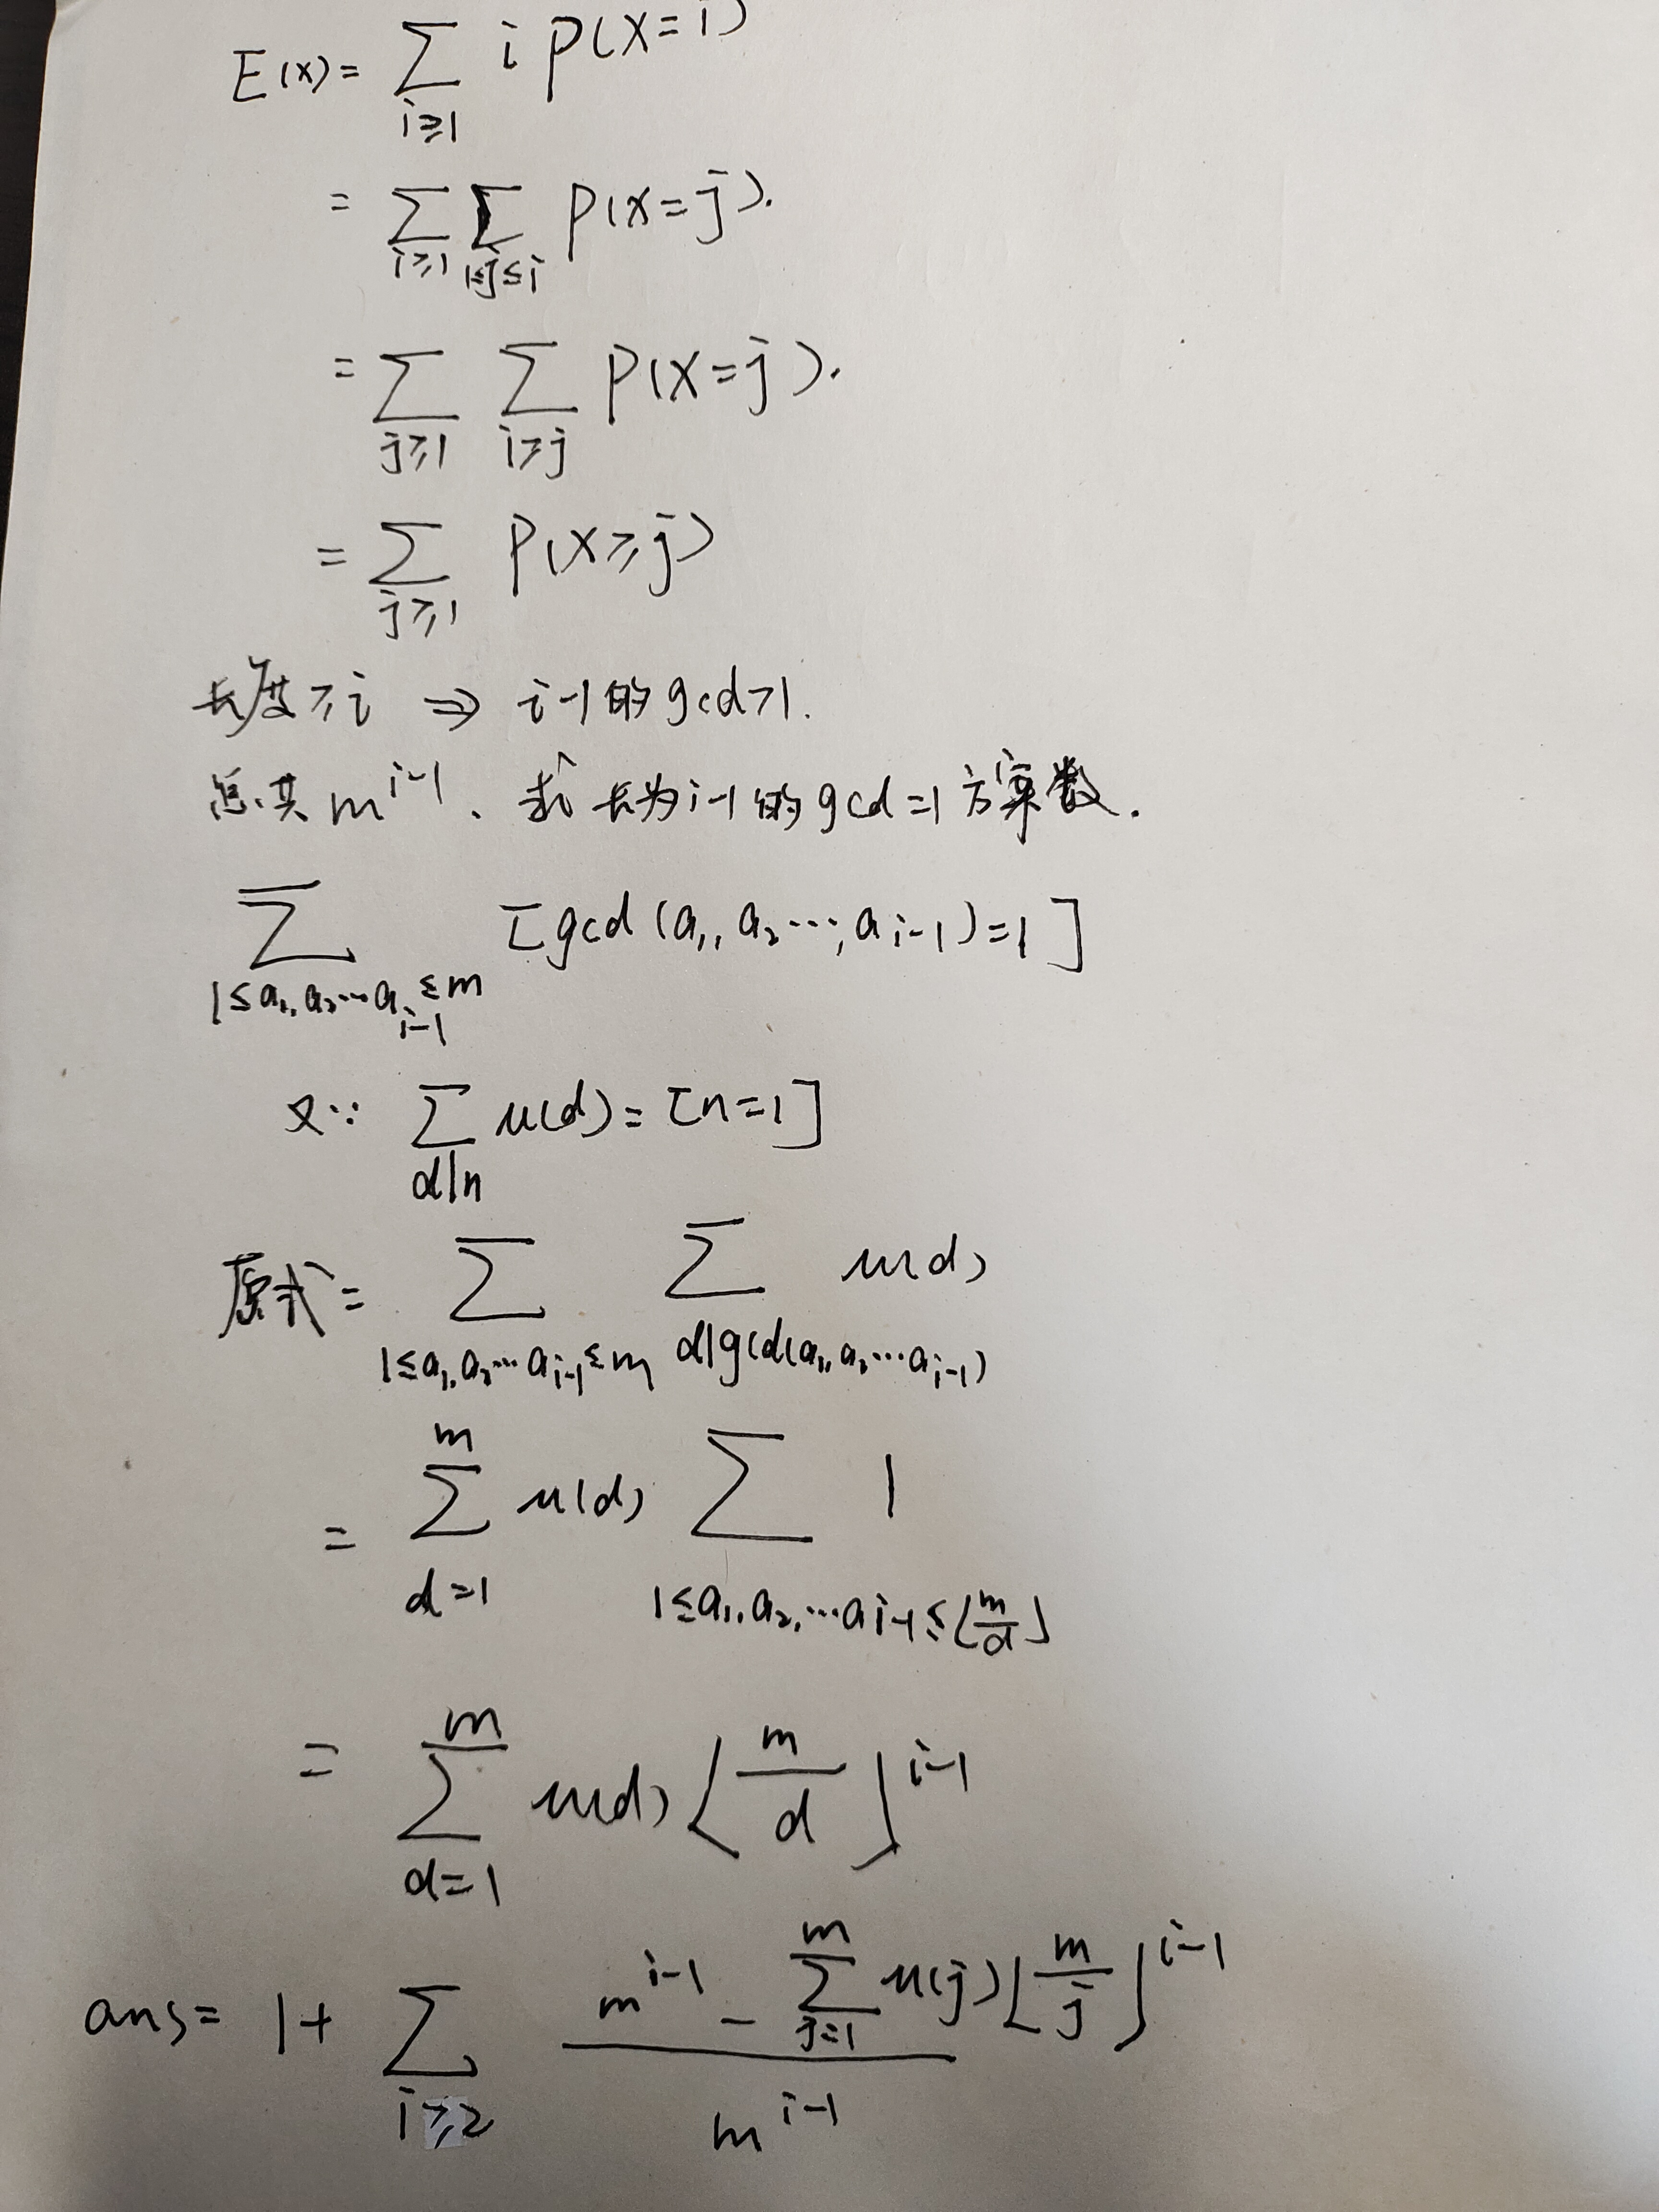 E(x) = ∑_{i≥1} i P(X=i)
= ∑_{i≥1} ∑_{1≤j≤i} P(X=j).
= ∑_{j≥1} ∑_{i≥j} P(X=j).
= ∑_{j≥1} P(X≥j)
长度≥i ⇒ i-1的gcd>1.
总共 m^{i-1}、求长为i-1的gcd=1方案数.
∑_{1≤a₁,a₂…a_{i-1}≤m} [gcd(a₁,a₂…,a_{i-1})=1]
又∵ ∑_{d|n} μ(d) = [n=1]
原式 = ∑_{1≤a₁,a₂…a_{i-1}≤m} ∑_{d|gcd(a₁,a₂…a_{i-1})} μ(d)
= ∑_{d=1}^{m} μ(d) ∑_{1≤a₁,a₂,…a_{i-1}≤⌊m/d⌋} 1
= ∑_{d=1}^{m} μ(d) ⌊m/d⌋^{i-1}
ans = 1+ ∑_{i≥2} (m^{i-1} - ∑_{j=1}^{m} μ(j)⌊m/j⌋^{i-1}) / m^{i-1}